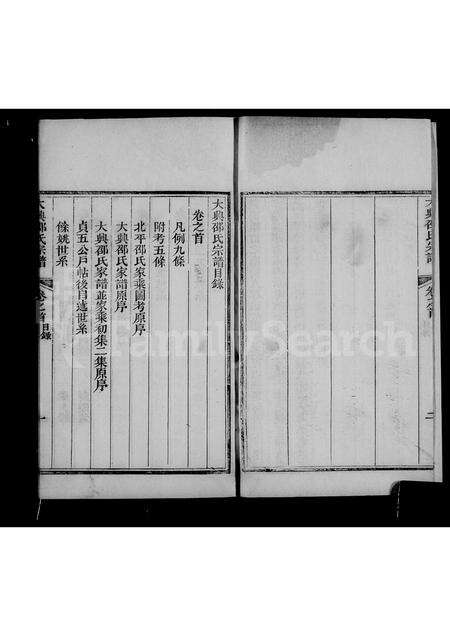 大興邵氏宗譜
卷之首
二
大興邵氏宗譜目錄
卷之首
凡例九條
附考五條
北平邵氏家乘圖考原序
大興邵氏家譜原序
大興邵氏家譜並家乘初集二集原序
貞五公戶帖後自述世系
餘姚世系
大興邵氏宗譜
卷之首目錄
一
FamilySearch